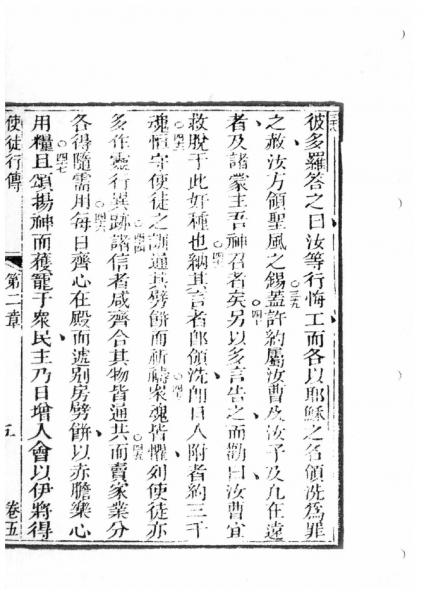 三八彼多羅答之曰汝等行悔工而各以耶穌之名領洗為罪
之赦汝方領聖風之錫三九蓋許約屬汝曹及汝子及凡在遠
者及諸蒙主吾神召者矣四十另以多言告之而勸曰汝曹宜
救脫于此奸種也四一納其言者即領洗即日人附者約三千
魂四二恒守使徒之誨通其劈餅而祈禱四三衆魂皆懼列使徒亦
多作靈行異跡四四諸信者咸齊合其物皆通共四五而賣家業分
各得隨需用四六每日齊心在殿而遞別房劈餅以亦膽樂心
用糧四七且頌揚神而獲寵于衆民主乃日增人會以伊將得
使徒行傳 第二章 五 卷五